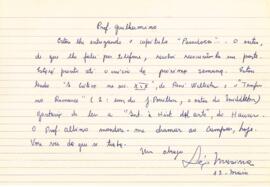 Prof. Guilhermino
Estou lhe entregando o capítulo "Paradoxo". O outro,
de que lhe falei por telefone, resolvi reescrevê-lo em parte.
Estará pronto até o início da próxima semana. Estou
lendo "A Crítica no séc. XIX", de René Wellek, e "Tempo
no Romance" (2: um de J. Pouillon, o outro de Mendilow)
Gostaria de ler a "Int. à Hist. del arte", de Hauser.
O Prof. Albino mandou-me chamar ao Campus, hoje.
Vou ver de que se trata.
Um abraço
12-maio